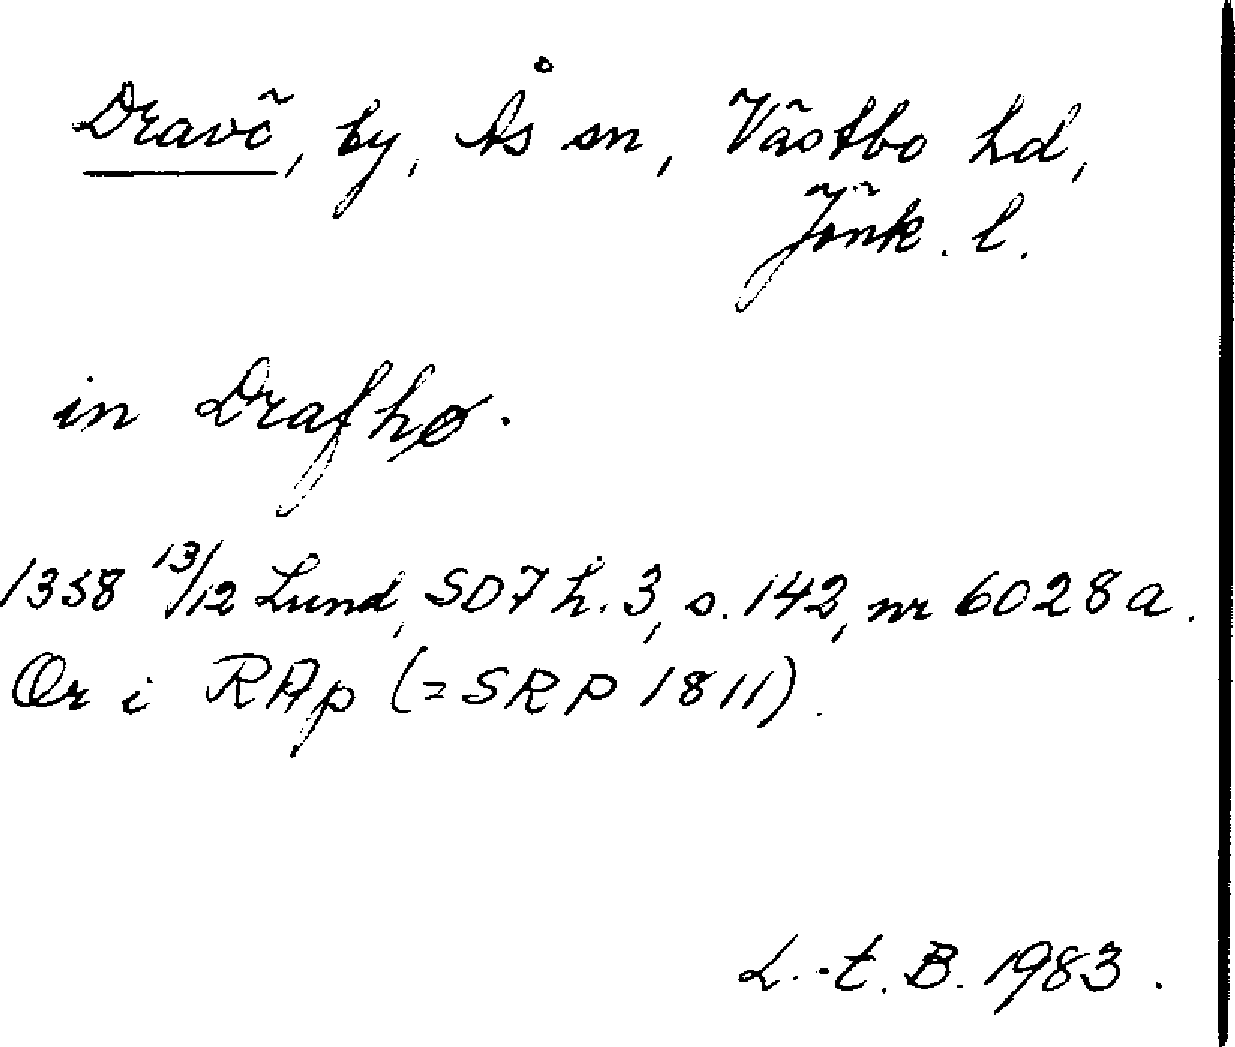 Dravö, by, Ås sn, Västbo hd,
Jönk. l.
in Drafhø.
1358 13/12 Lund, SD7 h. 3, s. 142, nr 6028a.
Or i RAp (=SRP 1811).
L.-t. B. 1983.